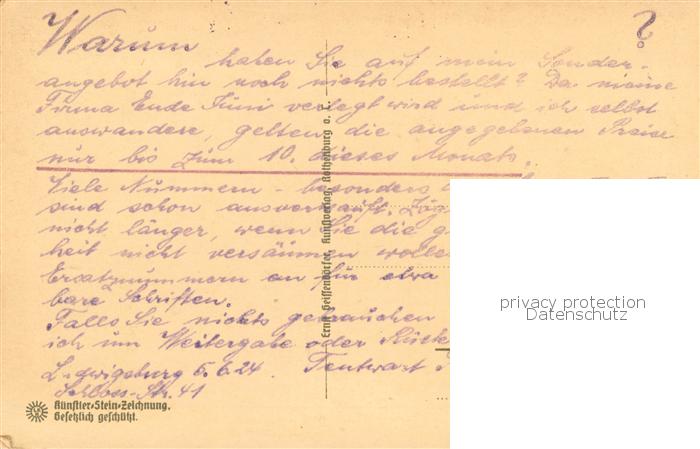 Warum ?
haben Sie auf mein Sonder-
angebot hin noch nichts bestellt? Da meine
Firma Ende Juni verlegt wird und ich selbst
auswandere, gelten die angegebenen Preise
nur bis zum 10. dieses Monats.
Viele Nummern - besonders
sind schon ausverkauft.
nicht länger, wenn Sie die g
heit nicht versäumen wolle
Ersatznummern an für etwa
bare Schriften.
Falls Sie nichts gebrauchen
ich um Weitergabe oder Rücks
Ludwigsburg 5.6.24.
Schloss-Str. 41
Ernst Geissendörfer, Kunstverlag, Rothenburg o. T.
Künstler-Stein-Zeichnung.
Gesetzlich geschützt.
privacy protection
Datenschutz